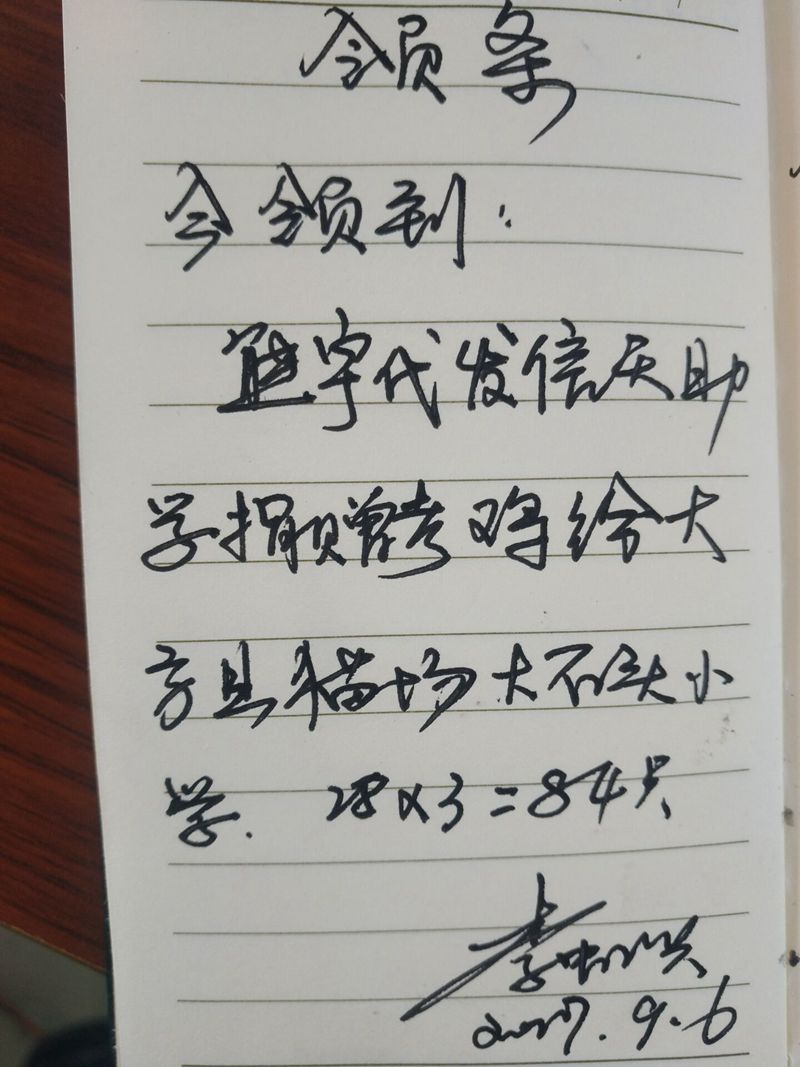 领条
今领到:
熊宇代发信天助
学捐赠考鸡给大
方县猫场大石头小
学. 28×3=84只
李
2017.9.6